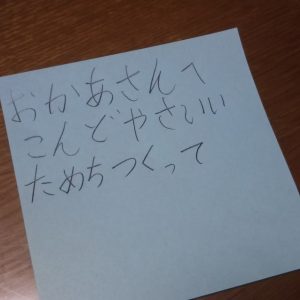 おかあさんへ
こんどやさいい
ためちつくって